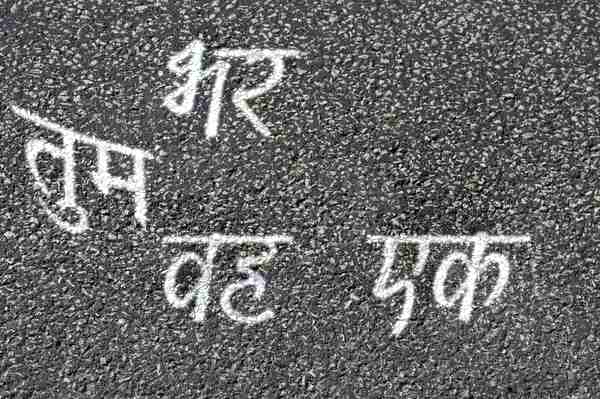 भर
तुम
वह एक